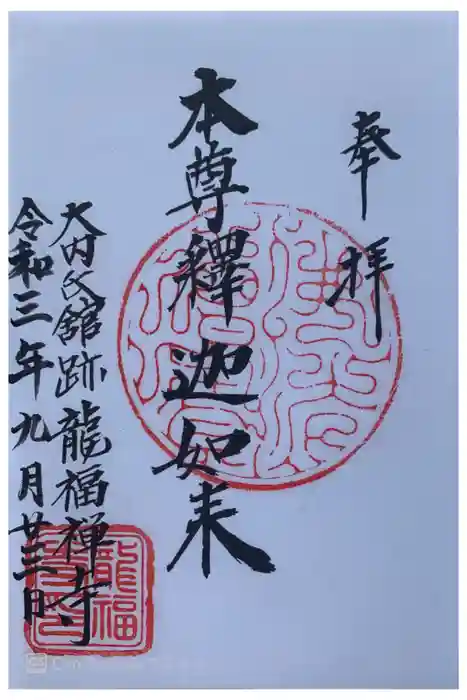 奉拝
本尊釋迦如来
大内氏舘跡龍福禅寺
令和三年九月廿三日
龍福